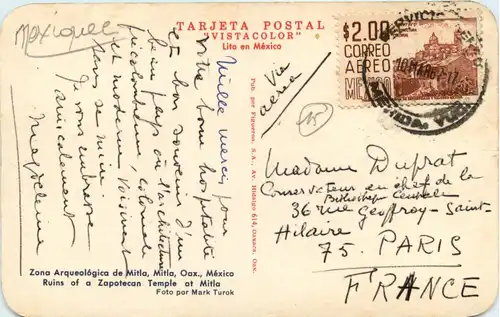 Mexique
TARJETA POSTAL
"VISTACOLOR"
Lito en México
$2.00
CORREO
AEREO
MEXICO
SERVICIO
10 MAR 62-17
MERIDA, YUC.
Via
aerea
15
Mille mercis pour
votre bonne hospitalité
et bon souvenir d'un
beau pays où l'architecture
précolombienne, coloniale
et moderne, voisinent
sans se nuire.
Je vous embrasse
amicalement
Magdeleine
Pub. por Figueroa, S.A., Av. Hidalgo 614, Oaxaca, Oax.
Madame Duprat
Conservateur en chef de la
Bibliothèque Centrale
36 rue Geoffroy-Saint-
Hilaire
75. PARIS
FRANCE
Zona Arqueológica de Mitla, Mitla, Oax., México
Ruins of a Zapotecan Temple at Mitla
Foto por Mark Turok